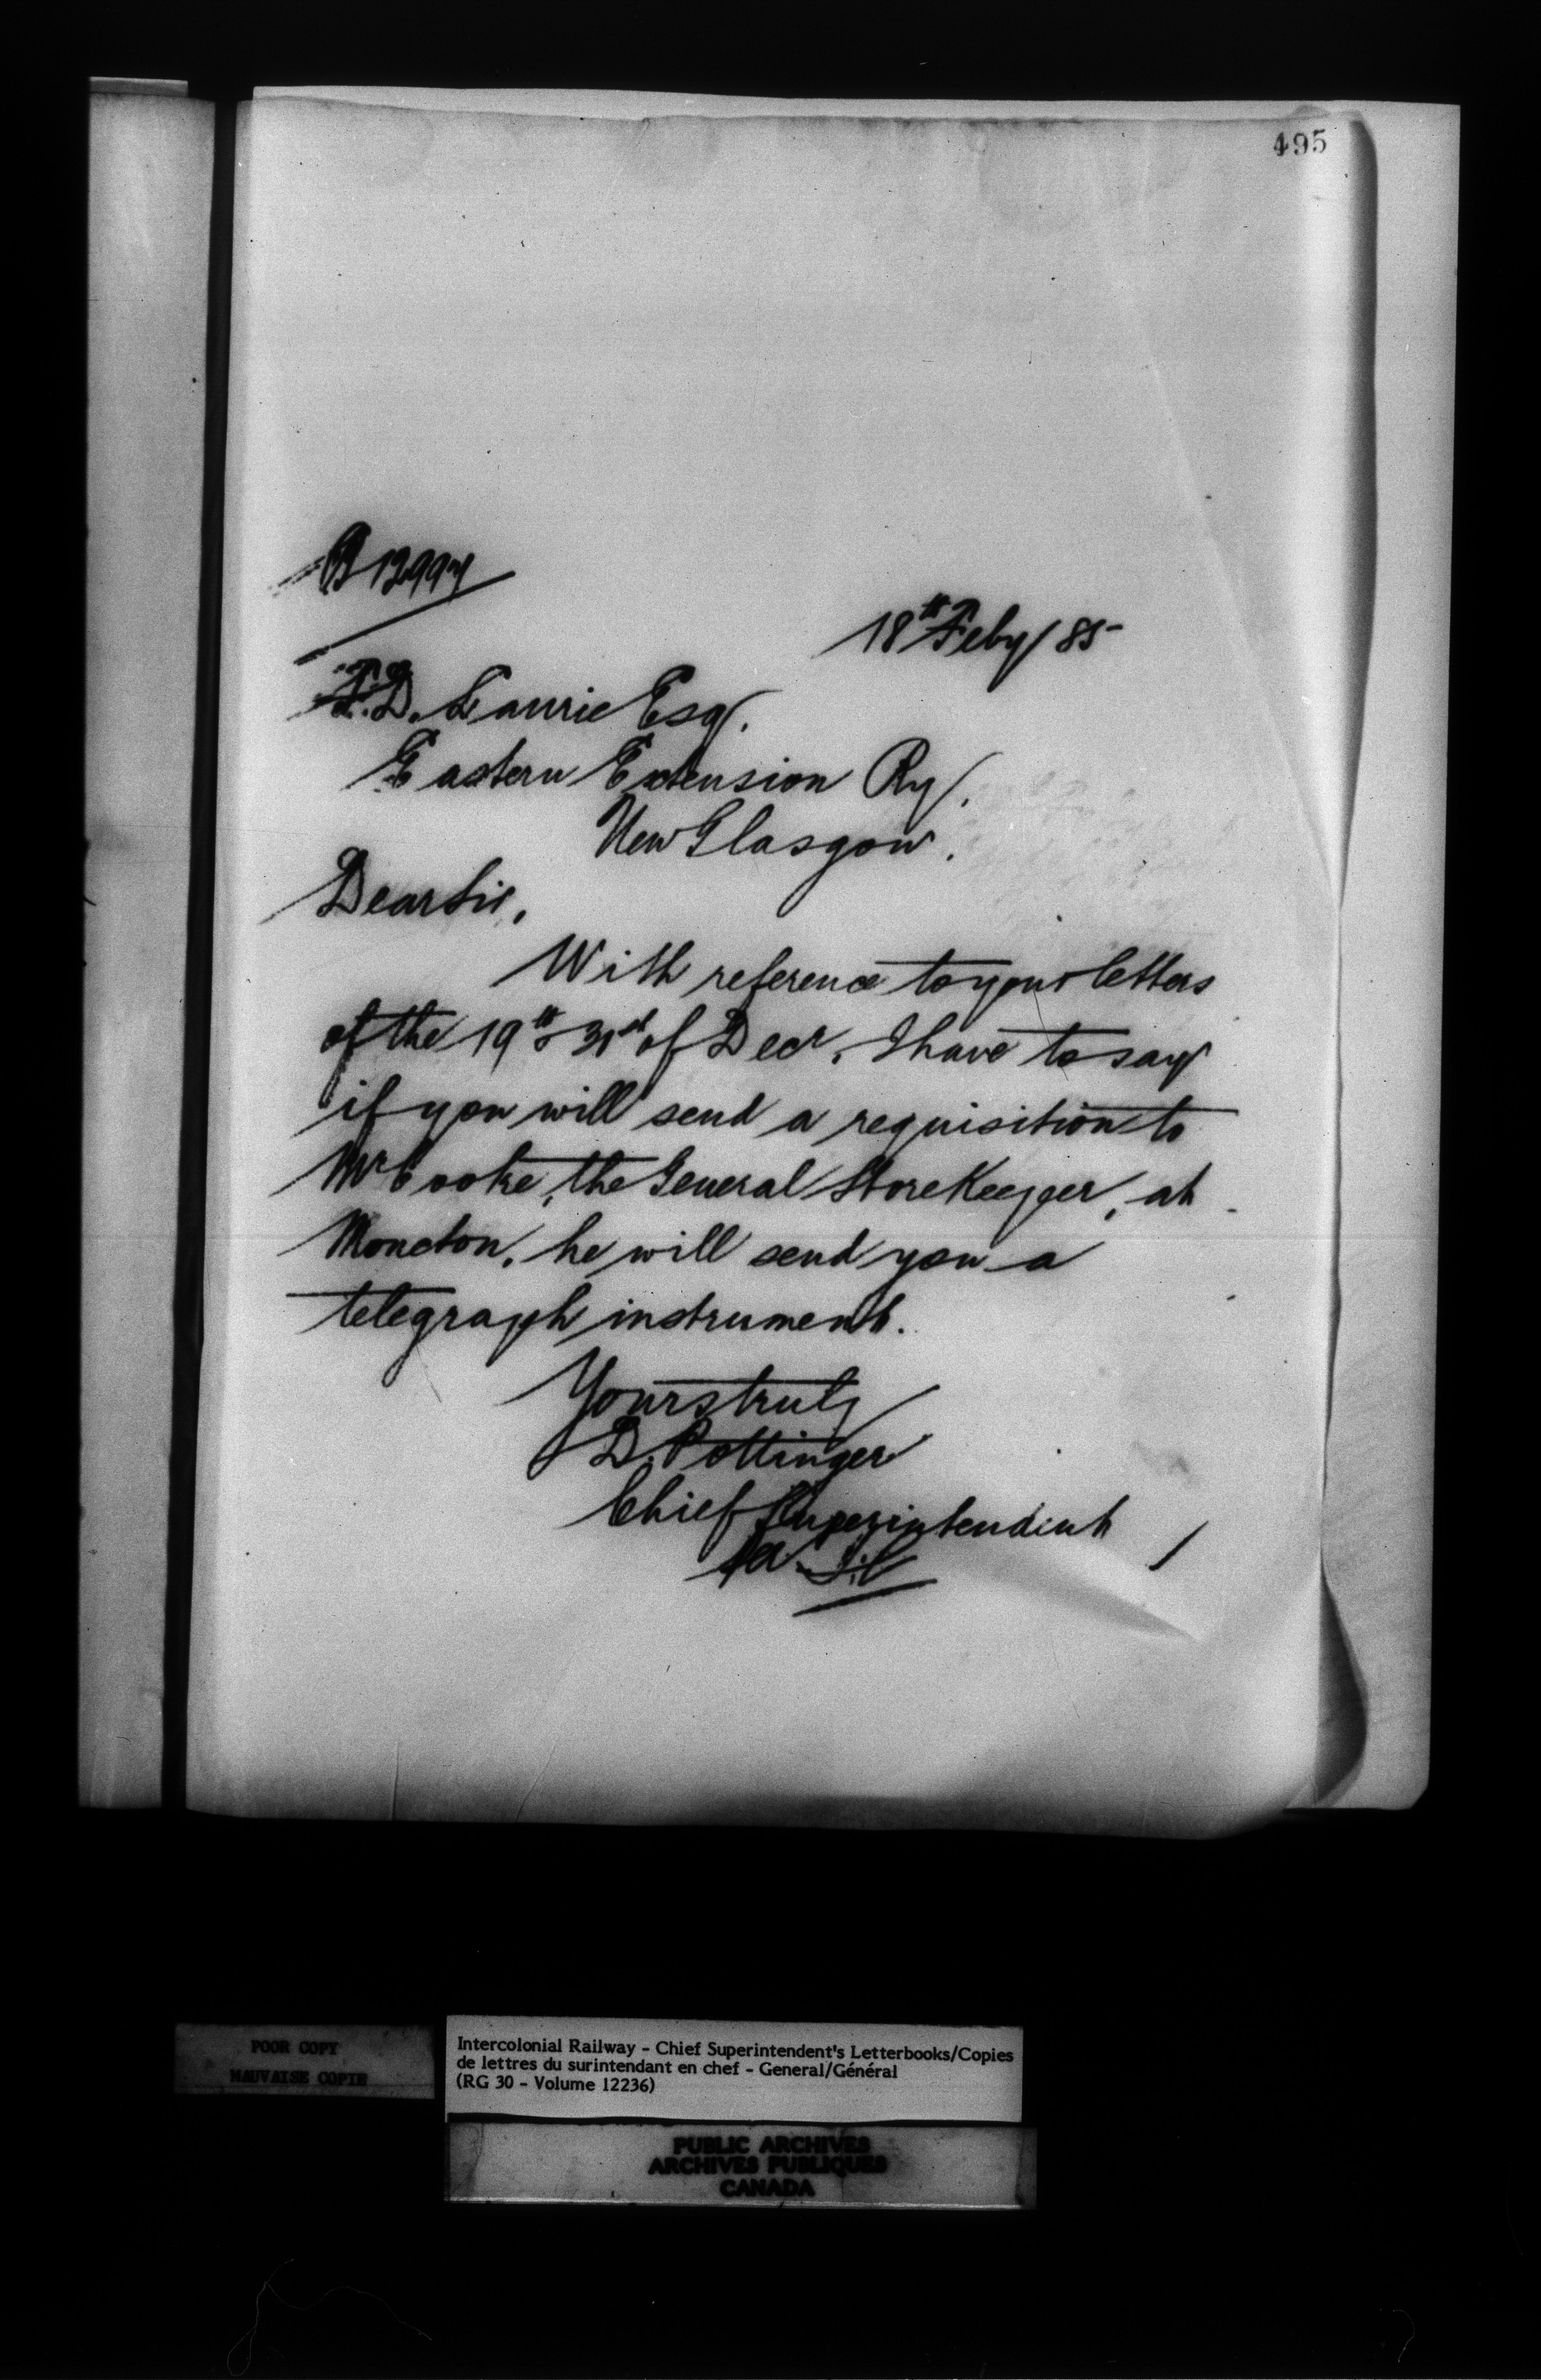 495
18th Feby/85
D. Laurie Esq.
Eastern Extension Ry.
New Glasgow.
Dear Sir,
With reference to your letters
of the 19th & 31st of Decr. I have to say
if you will send a requisition to
Mr Cooke, the General StoreKeeper, at
Moncton, he will send you a
telegraph instrument.
Yours truly
D. Pottinger
Chief Superintendent
POOR COPY
MAUVAISE COPIE
Intercolonial Railway - Chief Superintendent's Letterbooks/Copies
de lettres du surintendant en chef - General/Général
(RG 30 - Volume 12236)
PUBLIC ARCHIVES
ARCHIVES PUBLIQUES
CANADA